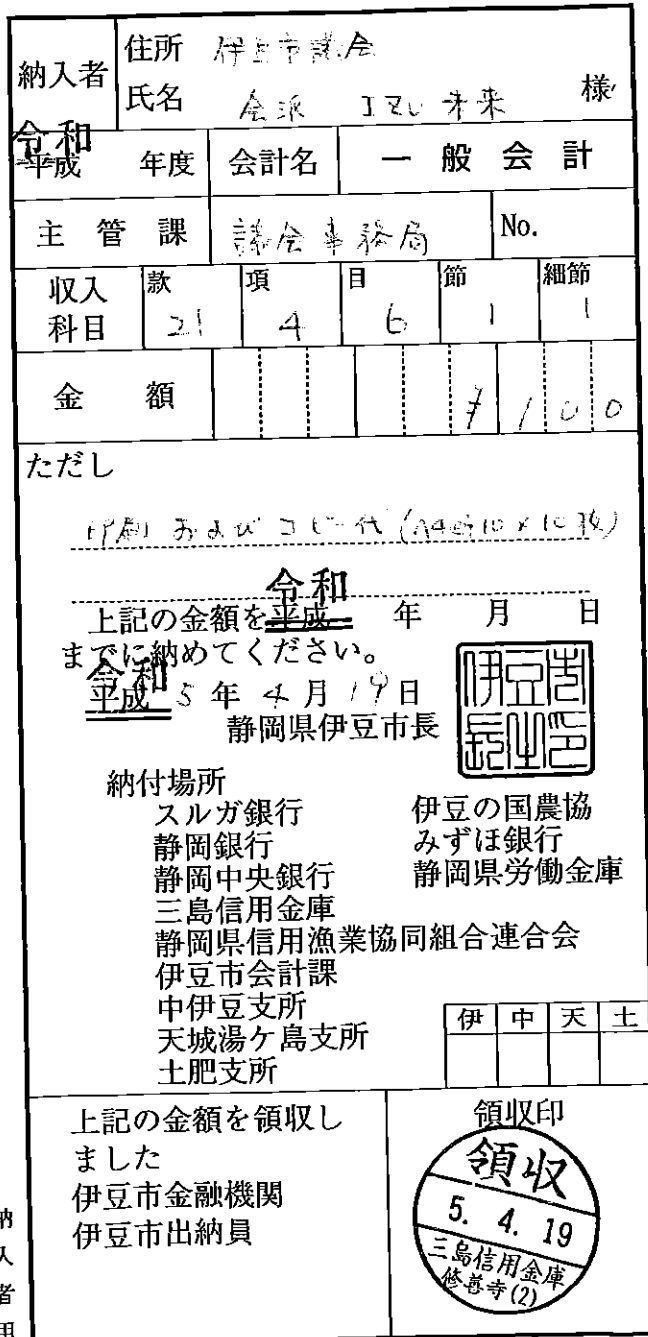 納入者
住所 伊豆市議会
氏名 会派 いずい未来 様
令和
平成 年度 会計名 一般会計
主管課 議会事務局 No.
収入科目 款 21 項 4 目 6 節 1 細節 1
金額 ¥100
ただし
印刷およびコピー代(A4 @10×10枚)
令和
上記の金額を平成 年 月 日
までに納めてください。
令和
平成 5年4月19日
静岡県伊豆市長
伊豆市長之印
納付場所
スルガ銀行 伊豆の国農協
静岡銀行 みずほ銀行
静岡中央銀行 静岡県労働金庫
三島信用金庫
静岡県信用漁業協同組合連合会
伊豆市会計課
中伊豆支所
天城湯ケ島支所
土肥支所
伊 中 天 土
上記の金額を領収し
ました
伊豆市金融機関
伊豆市出納員
領収印
領収
5. 4. 19
三島信用金庫
修善寺(2)
納入者用